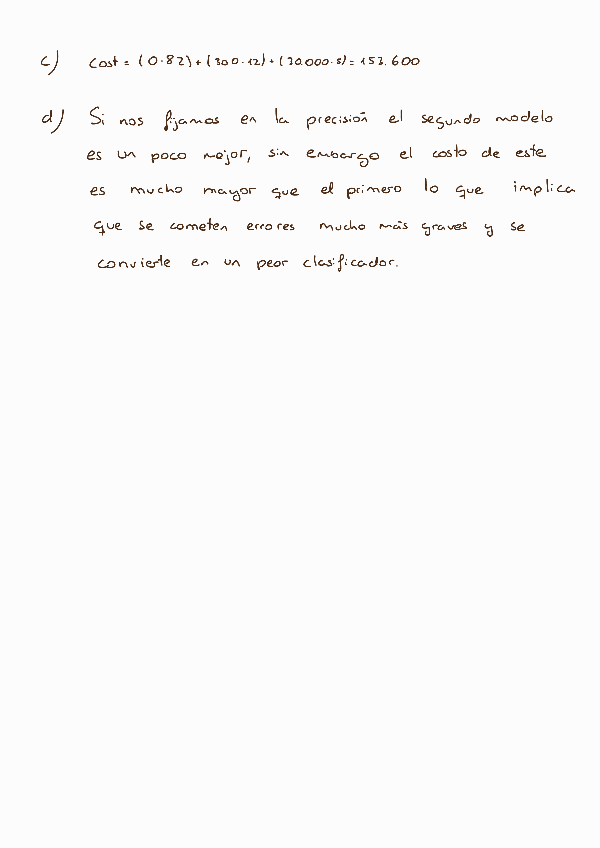 c) Cost = (0·82) + (300·12) + (30.000·5) = 153.600
d) Si nos fijamos en la precisión el segundo modelo
es un poco mejor, sin embargo el costo de este
es mucho mayor que el primero lo que implica
que se cometen errores mucho más graves y se
convierte en un peor clasificador.